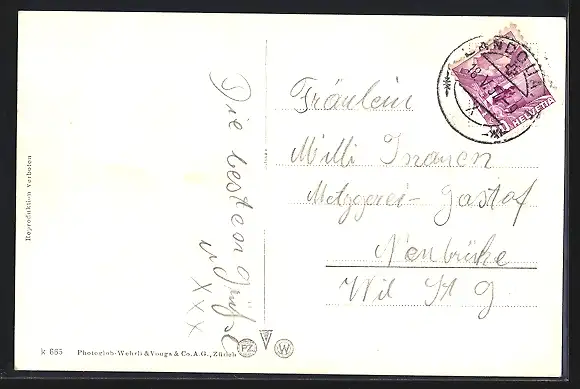 Reproduktion Verboten
Die besten Grüsse
XXX
Fräulein
Milli Inauen
Metzgerei- Gastof
Neubrücke
Wil St G
LANDQUA
HELVETIA
K 665 Photoglob-Wehrli & Vouga & Co. A. G., Zürich PZ W